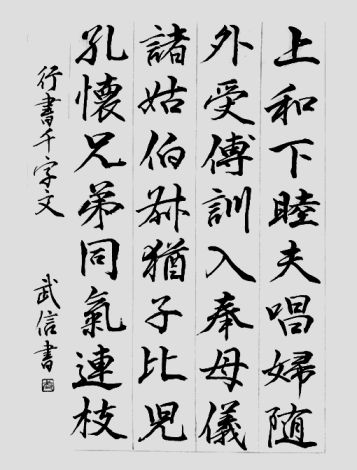 上和下睦夫唱婦隨
外受傅訓入奉母儀
諸姑伯叔猶子比兒
孔懷兄弟同氣連枝
行書千字文
武信書